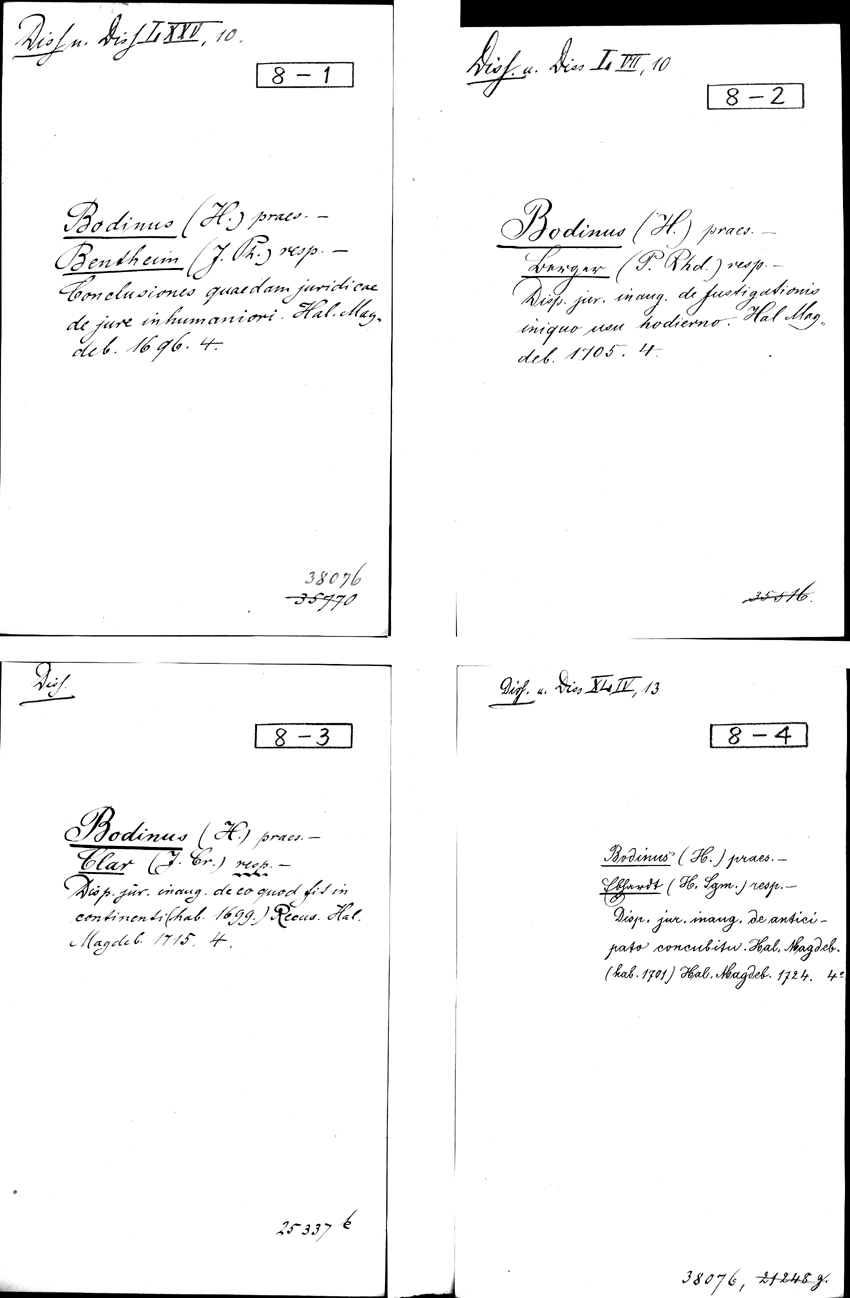 Diss. u. Diss LXXV, 10.
8-1
Bodinus (H.) praes. —
Bentheim (J. Ph.) resp. —
Conclusiones quaedam juridicae
de jure inhumaniori. Hal. Mag-
deb. 1696. 4.
38076
35770
Diss. u. Diss LVII, 10
8-2
Bodinus (H.) praes. —
Berger (P. Rhd.) resp. —
Disp. jur. inaug. de fustigationis
iniquo usu hodierno. Hal Mag-
deb. 1705. 4.
35516.
Diss.
8-3
Bodinus (H.) praes. —
Clar (J. Cr.) resp. —
Disp. jur. inaug. de eo quod fit in
continenti (hab. 1699.) Recus. Hal.
Magdeb. 1715. 4.
25337
Diss. u. Diss XLIV, 13
8-4
Bodinus (H.) praes. —
Ebhardt (H. Sgm.) resp. —
Disp. jur. inaug. de antici-
pato concubitu. Hal. Magdeb.
(hab. 1701) Hal. Magdeb. 1724. 4°
38076, 21248 g.